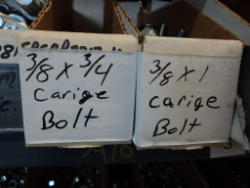 3/8 x 3/4
Carige
Bolt
3/8 x 1
carige
Bolt